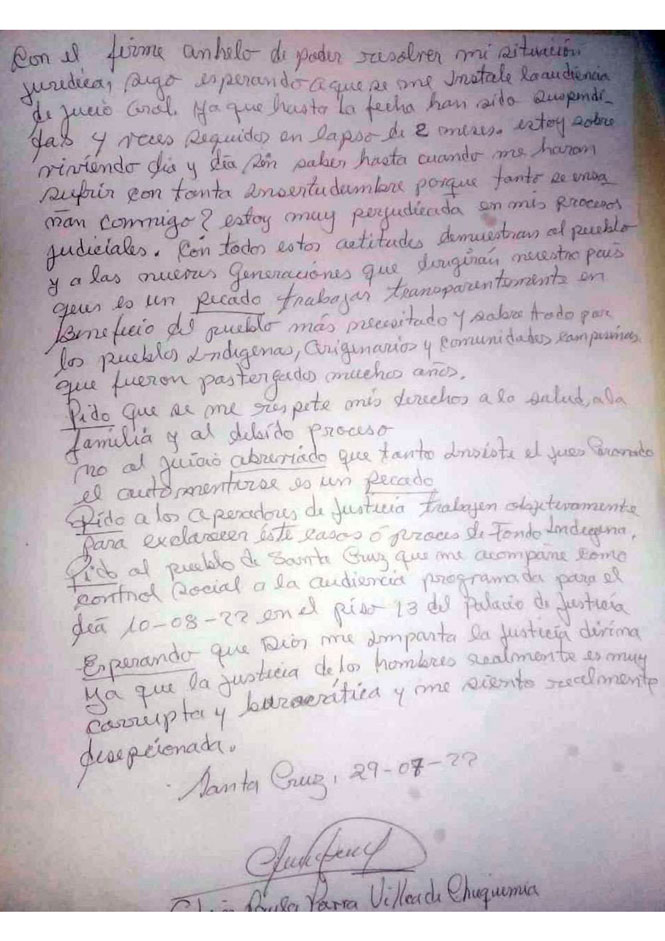 Con el firme anhelo de poder resolver mi situación
juridica, sigo esperando a que se me instale la audiencia
de jucio Oral. Ya que hasta la fecha han sido suspendi-
das 4 veces seguidos en lapso de 2 meses. estoy sobre
viviendo dia y dia sin saber hasta cuando me haran
sufrir con tanta insertudumbre porque tanto se ensa
ñan commigo? estoy muy perjudicada en mis procesos
judiciales. Con todos estos actitudes demuestran al pueblo
y a las nuevas Generaciones que dirigirán nuestro país
que es un pecado trabajar transparentemente en
beneficio del pueblo más necesitado y sobre todo por
los pueblos Indigenas, Originarios y comunidades campesinas
que fueron postergados muchos años.
Pido que se me respete mis derechos a la salud, a la
familia y al debido proceso
no al juicio abreviado que tanto insiste el jues
el automentirse es un pecado
Pido a los Operadores de Justicia trabajen objetivamente
para exclarecer éste casos ó proces de Fondo Indigena.
Pido al pueblo de Santa Cruz que me acompañe como
control Social a la audiencia programada para el
día 10-08-22 en el piso 13 del Palacio de Justicia
Esperando que Dios me imparta la justicia divina
ya que la justicia de los hombres realmente es muy
corrupta y burocrática y me siento realmente
desepcionada.
Santa Cruz, 29-07-22
Parra Villca de Chuquimia